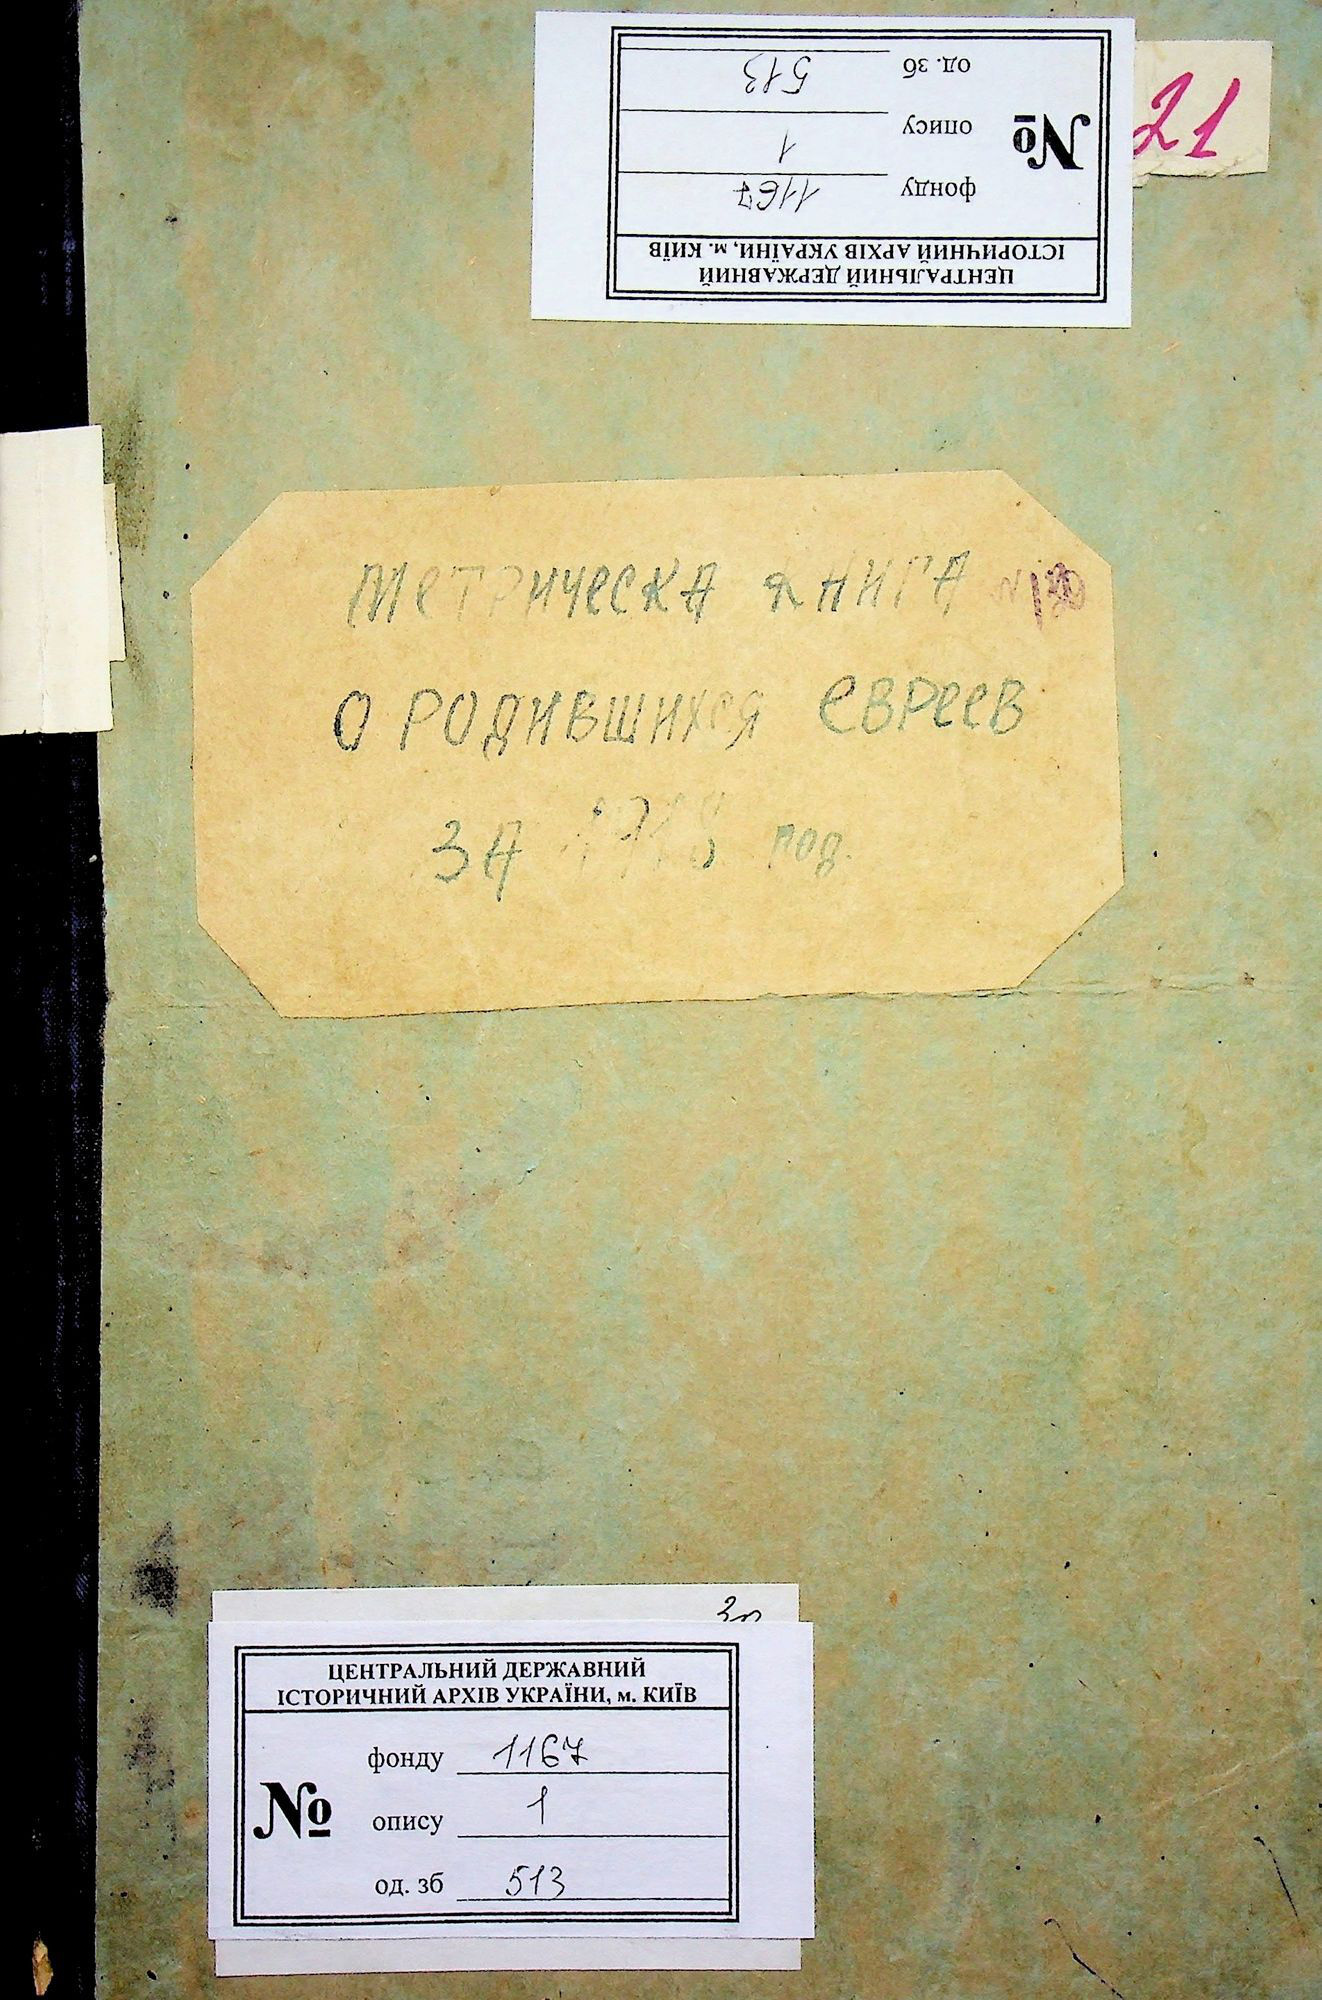 ЦЕНТРАЛЬНИЙ ДЕРЖАВНИЙ
ІСТОРИЧНИЙ АРХІВ УКРАЇНИ, м. КИЇВ
№
фонду 1167
опису 1
од. зб 513
21
Метрическа книга
о родившихся евреев
за год.
ЦЕНТРАЛЬНИЙ ДЕРЖАВНИЙ
ІСТОРИЧНИЙ АРХІВ УКРАЇНИ, м. КИЇВ
№
фонду 1167
опису 1
од. зб 513